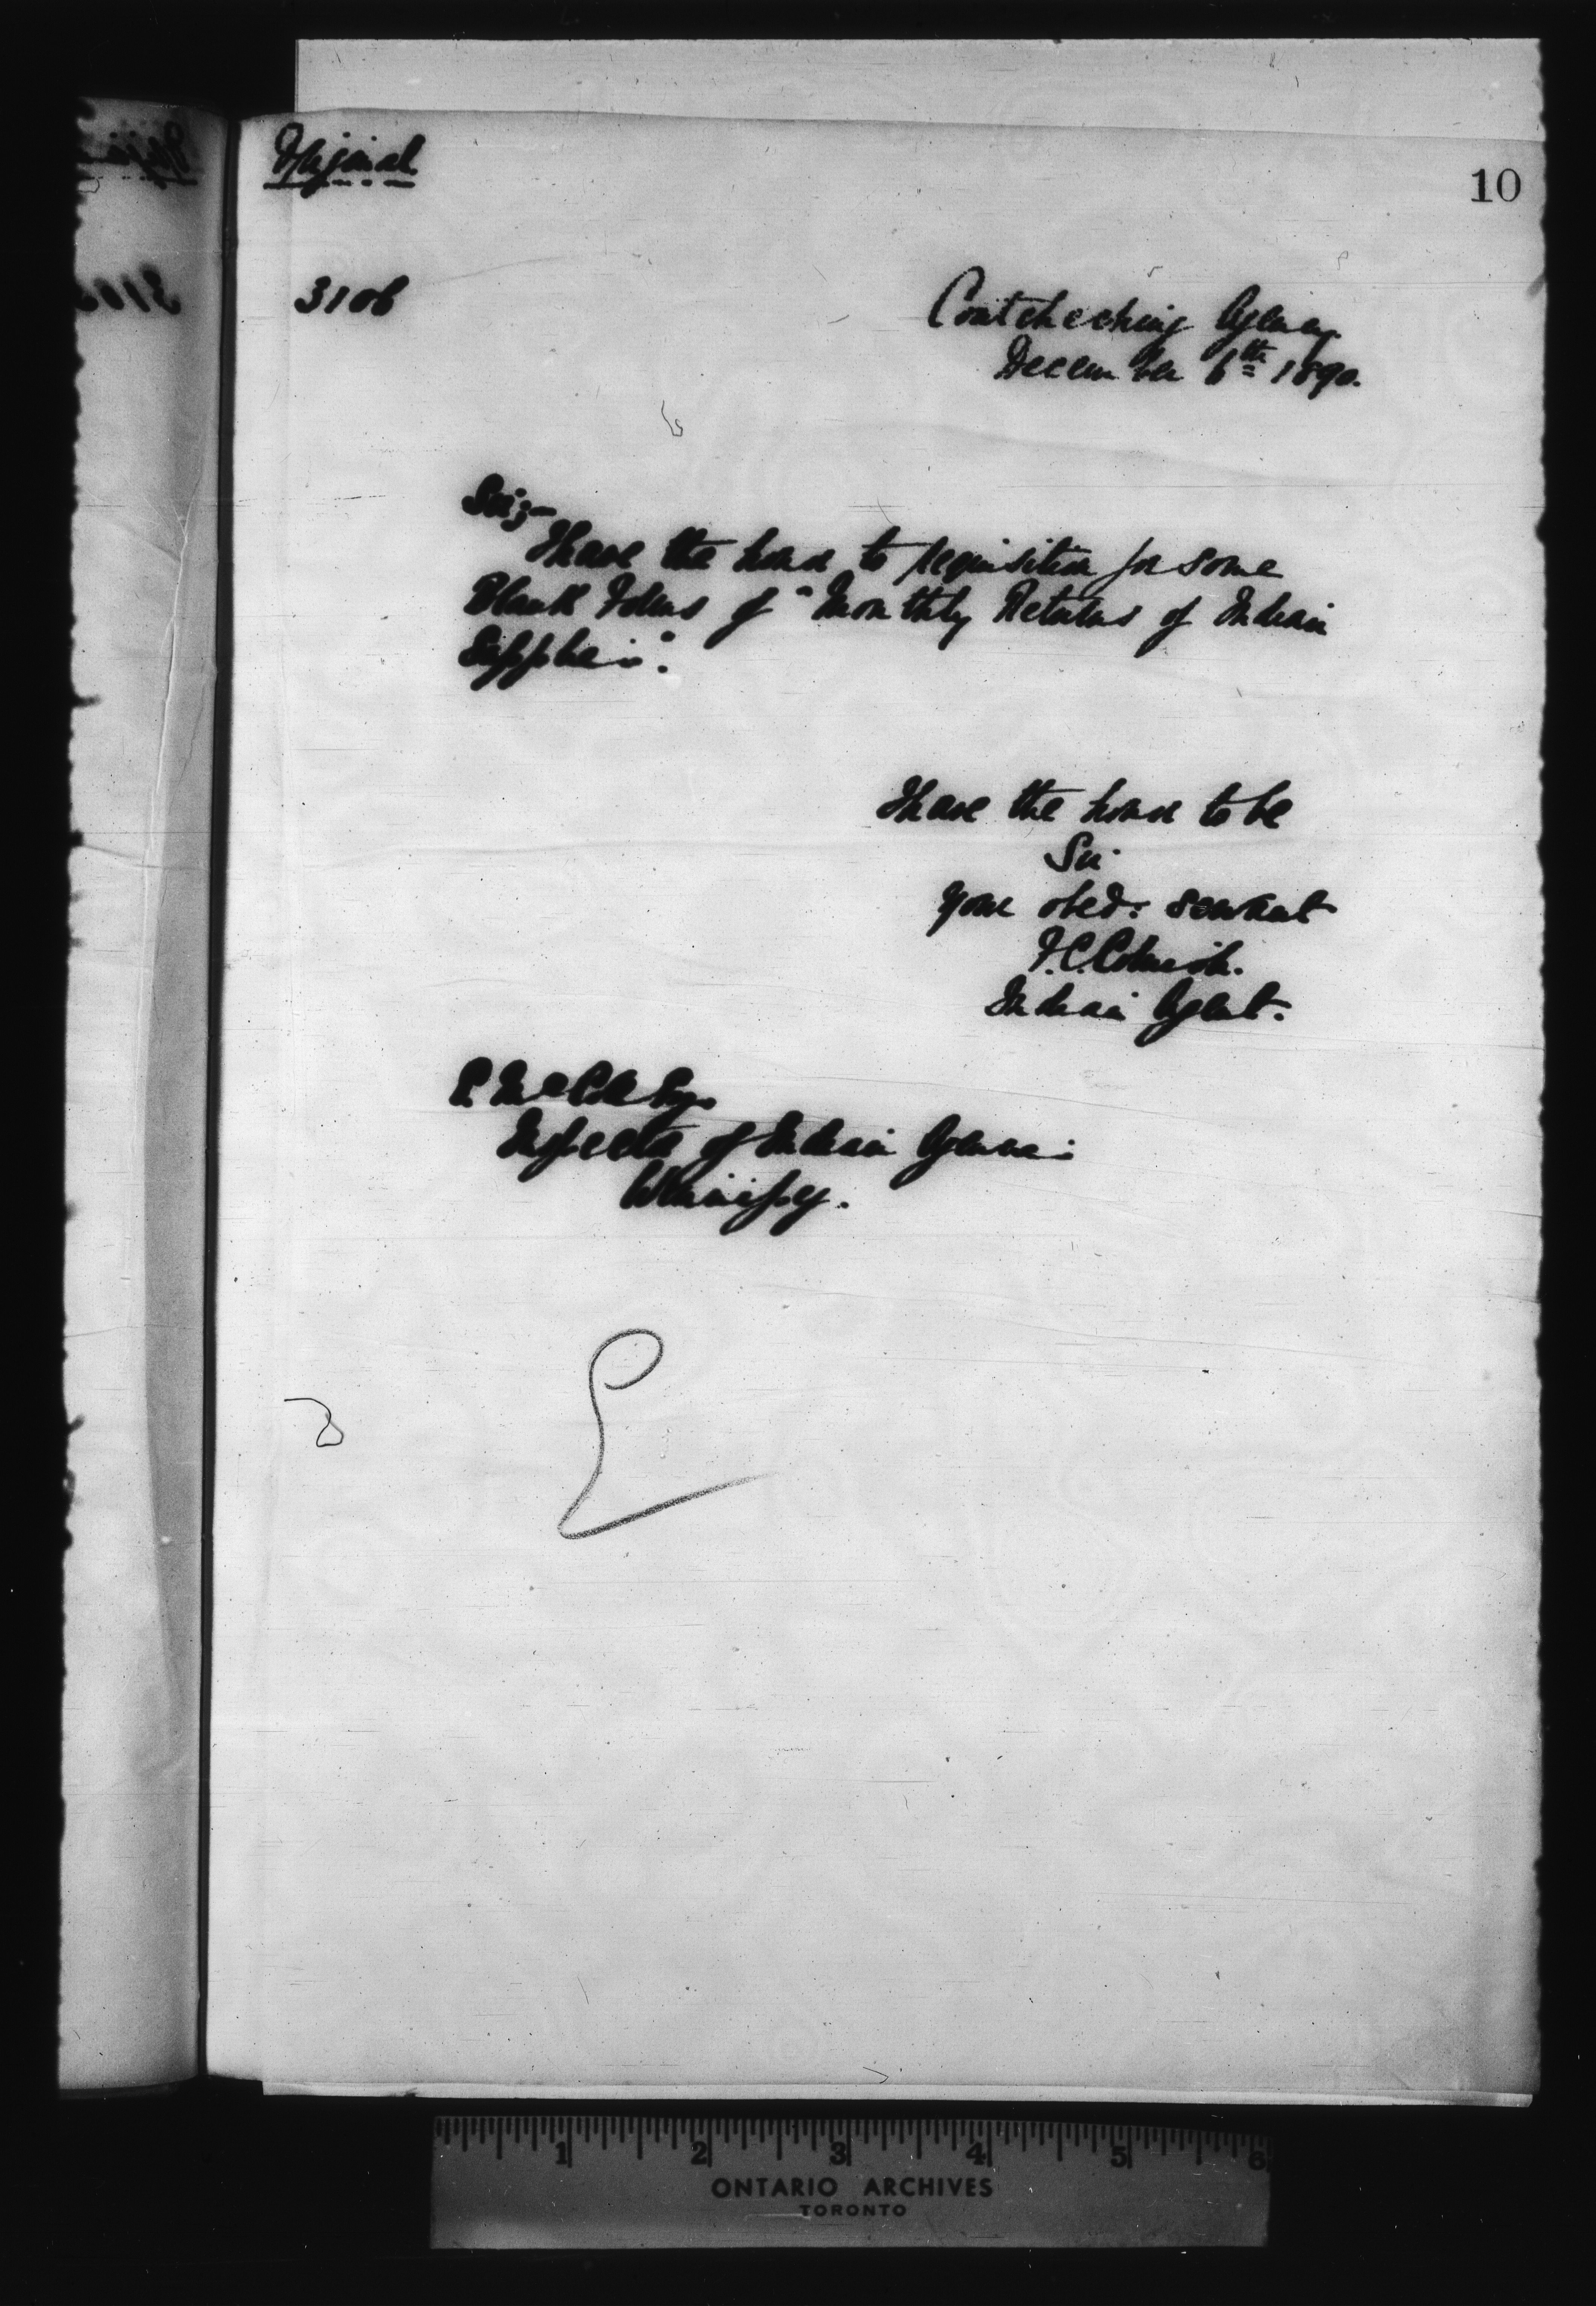 Original
10
3106
Coutcheeching Agency
December 6th 1890.
Sir;-
I have the honor to requisition for some
Blank Forms of "Monthly Returns of Indian
Supplies".
I have the honor to be
Sir
your obed: servant
F.C. Cornish.
Indian Agent.
E. McColl Esq.
Inspector of Indian Agencies
Winnipeg.
1 2 3 4 5 6
ONTARIO ARCHIVES
TORONTO